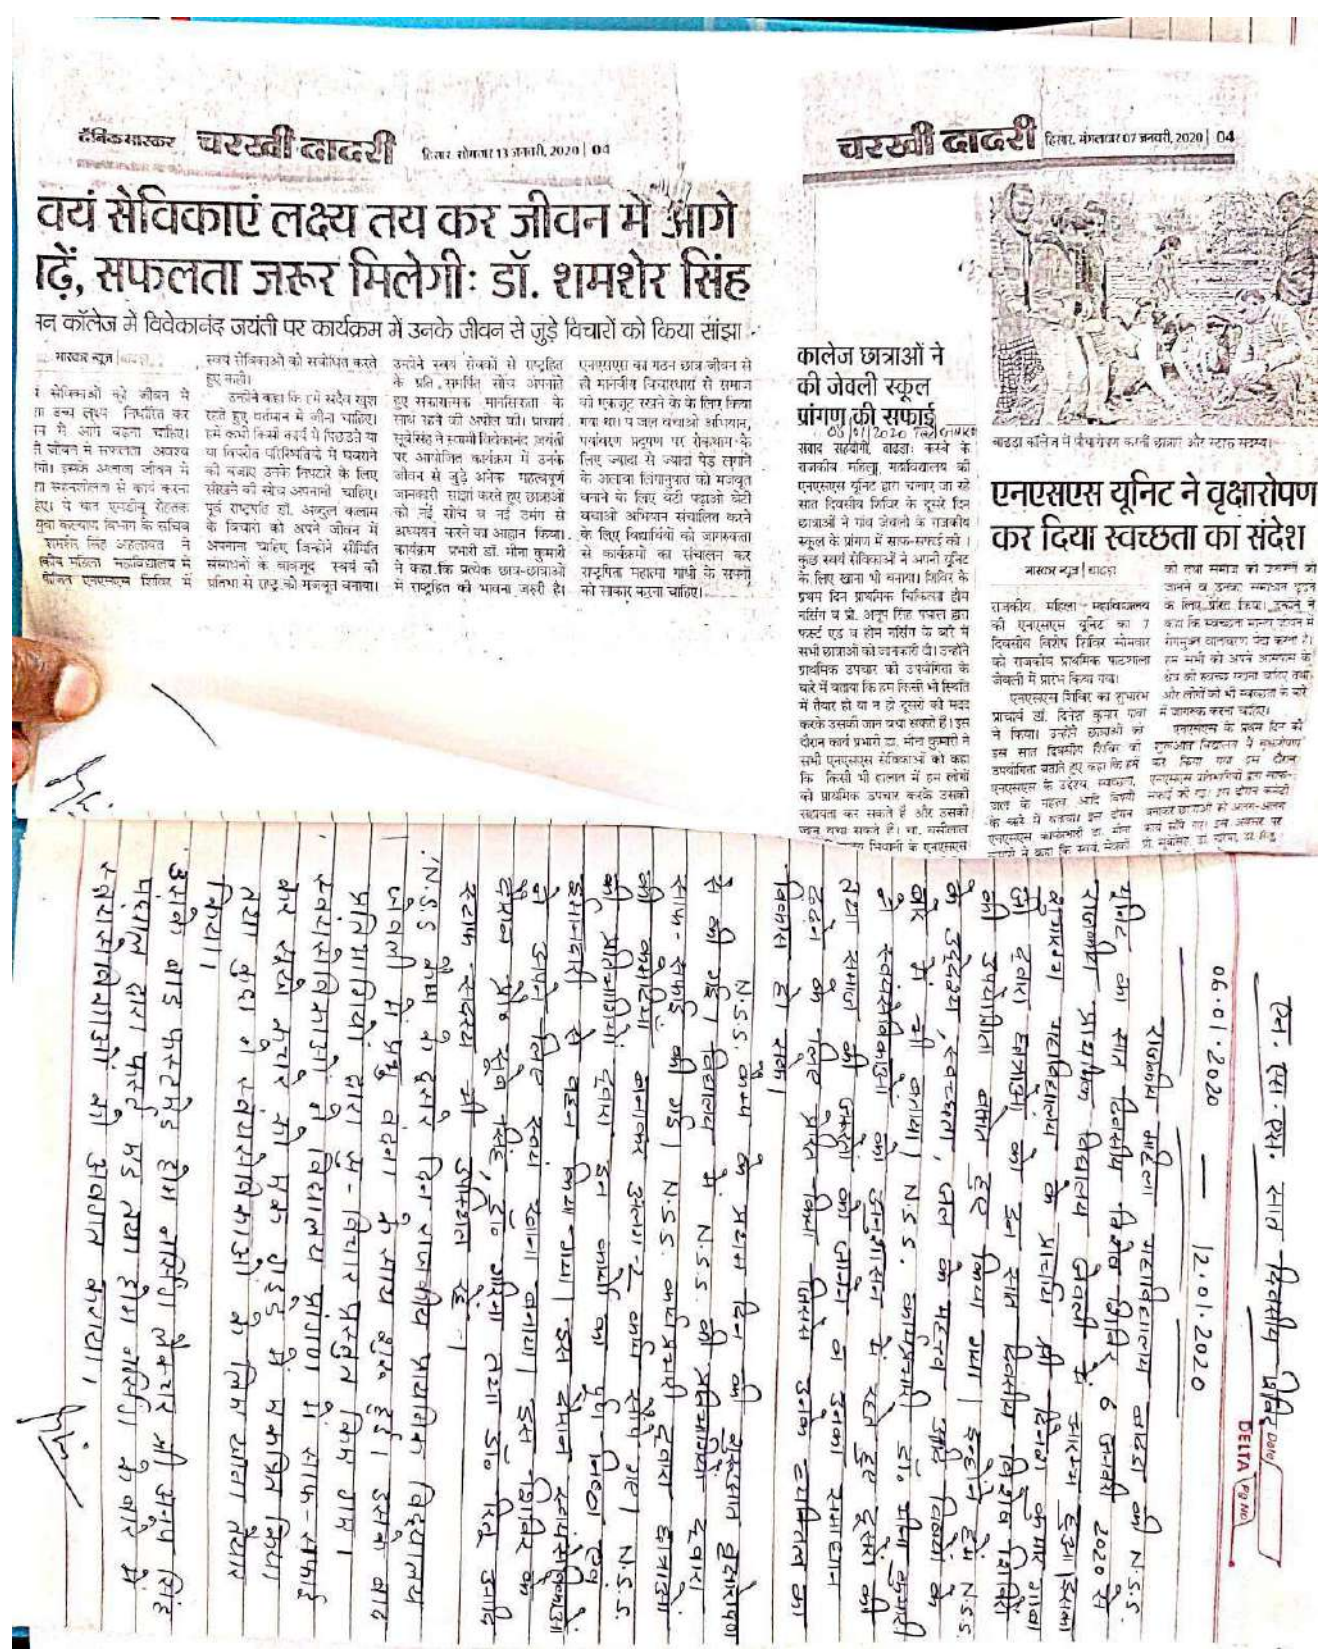 दैनिक भास्कर चरखी दादरी हिसार. सोमवार 13 जनवरी, 2020 | 04
वयं सेविकाएं लक्ष्य तय कर जीवन में आगे
ढ़ें, सफलता जरूर मिलेगीः डॉ. शमशेर सिंह
मन कॉलेज में विवेकानंद जयंती पर कार्यक्रम में उनके जीवन से जुड़े विचारों को किया सांझा
भास्कर न्यूज | बाढड़ा
सेविकाओं को जीवन में
उच्च लक्ष्य निर्धारित कर
में आगे बढ़ना चाहिए।
जीवन में सफलता अवश्य
इसके अलावा जीवन में
सहनशीलता से कार्य करना
ये बात एमडीयू रोहतक
युवा कल्याण विभाग के सचिव
शमशेर सिंह अहलावत ने
महिला महाविद्यालय में
एनएसएस शिविर में
स्वयं सेविकाओं को संबोधित करते
हुए कही।
उन्होंने कहा कि हमें सदैव खुश
रहते हुए वर्तमान में जीना चाहिए।
हमें कभी किसी कार्य में पिछड़ने या
या विपरीत परिस्थितियों में घबराने
की बजाए उनके निपटारे के लिए
सीखने की सोच अपनानी चाहिए।
पूर्व राष्ट्रपति डॉ. अब्दुल कलाम
के विचारों को अपने जीवन में
अपनाना चाहिए जिन्होंने सीमित
संसाधनों के बावजूद स्वयं की
प्रतिभा से राष्ट्र को मजबूत बनाया।
उन्होंने स्वयं सेवकों से राष्ट्रहित
के प्रति समर्पित सोच अपनाते
हुए सकारात्मक मानसिकता के
साथ रहने की अपील की। प्राचार्य
सूबेसिंह ने स्वामी विवेकानंद जयंती
पर आयोजित कार्यक्रम में उनके
जीवन से जुड़े अनेक महत्वपूर्ण
जानकारी साझा करते हुए छात्राओं
को नई सोच व नई उमंग से
अध्ययन करने का आह्वान किया।
कार्यक्रम प्रभारी डॉ. मीना कुमारी
ने कहा कि प्रत्येक छात्र-छात्राओं
में राष्ट्रहित की भावना जरूरी है।
एनएसएस का गठन छात्र जीवन से
ही मानवीय विचारधारा से समाज
को एकजुट रखने के के लिए किया
गया था। जल बचाओ अभियान,
पर्यावरण प्रदूषण पर रोकथाम के
लिए ज्यादा से ज्यादा पेड़ लगाने
के अलावा लिंगानुपात को मजबूत
बनाने के लिए बेटी पढ़ाओ बेटी
बचाओ अभियान संचालित करने
के लिए विद्यार्थियों को जागरूकता
से कार्यक्रमों का संचालन कर
राष्ट्रपिता महात्मा गांधी के सपनों
को साकार करना चाहिए।
चरखी दादरी हिसार. मंगलवार 07 जनवरी, 2020 | 04
कालेज छात्राओं ने
की जेवली स्कूल
प्रांगण की सफाई
संवाद सहयोगी, बाढड़ा: कस्बे के
राजकीय महिला महाविद्यालय की
एनएसएस यूनिट द्वारा चलाए जा रहे
सात दिवसीय शिविर के दूसरे दिन
छात्राओं ने गांव जेवली के राजकीय
स्कूल के प्रांगण में साफ-सफाई की।
कुछ स्वयं सेविकाओं ने अपनी यूनिट
के लिए खाना भी बनाया। शिविर के
प्रथम दिन प्राथमिक चिकित्सा होम
नर्सिंग व प्रो. अनूप सिंह पंघाल द्वारा
फर्स्ट एड व होम नर्सिंग के बारे में
सभी छात्राओं को जानकारी दी। उन्होंने
प्राथमिक उपचार की उपयोगिता के
बारे में बताया कि हम किसी भी स्थिति
में तैयार हो या न हो दूसरों की मदद
करके उसकी जान बचा सकते हैं। इस
दौरान कार्य प्रभारी डा. मीना कुमारी ने
सभी एनएसएस सेविकाओं को कहा
कि किसी भी हालात में हम लोगों
को प्राथमिक उपचार करके उसकी
सहायता कर सकते हैं और उसकी
जान बचा सकते हैं। चौ. बंसीलाल
भिवानी के एनएसएस
बाढड़ा कॉलेज में पौधारोपण करती छात्राएं और स्टाफ सदस्य।
एनएसएस यूनिट ने वृक्षारोपण
कर दिया स्वच्छता का संदेश
भास्कर न्यूज | बाढड़ा
राजकीय महिला महाविद्यालय
की एनएसएस यूनिट का 7
दिवसीय विशेष शिविर सोमवार
को राजकीय प्राथमिक पाठशाला
जेवली में प्रारंभ किया गया।
एनएसएस शिविर का शुभारंभ
प्राचार्य डॉ. दिनेश कुमार गाबा
ने किया। उन्होंने छात्राओं को
इस सात दिवसीय शिविर की
उपयोगिता बताते हुए कहा कि हमें
एनएसएस के उद्देश्य, स्वच्छता,
जल के महत्व आदि विषयों
के बारे में बताया। इस दौरान
एनएसएस कार्यप्रभारी डा. मीना
कुमारी ने कहा कि स्वयं सेवकों
को तथा समाज की जरूरतों को
जानने व उनका समाधान ढूंढने
के लिए प्रेरित किया। उन्होंने ने
कहा कि स्वच्छता मानव जीवन में
रोगमुक्त वातावरण पैदा करता है।
हम सभी को अपने आसपास के
क्षेत्र को स्वच्छ रखना चाहिए तथा
और लोगों को भी स्वच्छता के बारे
में जागरूक करना चाहिए।
एनएसएस के प्रथम दिन की
शुरूआत विद्यालय में वृक्षारोपण
कर किया गया इस दौरान
एनएसएस प्रतिभागियों द्वारा साफ-
सफाई की गई। इस दौरान कमेटी
बनाकर छात्राओं को अलग-अलग
कार्य सौंपे गए। इस अवसर पर
प्रो. सूबेसिंह, डॉ.
DELTA Pg No
Date
एन. एस. एस. सात दिवसीय शिविर
06.01.2020 — 12.01.2020
राजकीय महिला महाविद्यालय बाढड़ा की N.S.S.
यूनिट का सात दिवसीय विशेष शिविर 6 जनवरी 2020 से
राजकीय प्राथमिक विद्यालय जेवली में आरम्भ हुआ। इसका
शुभारम्भ महाविद्यालय के प्राचार्य श्री दिनेश कुमार गाबा
जी द्वारा छात्राओं को इस सात दिवसीय विशेष शिविर
की उपयोगिता बताते हुए किया गया। इन्होंने हमें N.S.S.
के उद्देश्य, स्वच्छता, जल के महत्व आदि विषयों के
बारे में भी बताया। N.S.S. कार्यप्रभारी डॉ० मीना कुमारी
ने स्वयंसेविकाओं को अनुशासन में रहते हुए दूसरों की
तथा समाज की जरूरतों को जानने व उनका समाधान
ढूंढने के लिए प्रेरित किया जिससे उनके व्यक्तित्व का
विकास हो सके।
N.S.S. कैम्प के प्रथम दिन की शुरूआत वृक्षारोपण
से की गई। विद्यालय में N.S.S. की प्रतिभागियों द्वारा
साफ-सफाई की गई। N.S.S. कार्यप्रभारी द्वारा छात्राओं
की कमेटियां बनाकर अलग-2 कार्य सौंपे गए। N.S.S.
की प्रतिभागियों द्वारा इन कार्यों का पूर्ण निष्ठा एवं
ईमानदारी से वहन किया गया। इस दौरान स्वयंसेविकाओं
ने अपने लिए स्वयं खाना बनाया। इस शिविर के
दौरान प्रो० सूबे सिंह, डॉ० गरिमा तथा डॉ० रितु आदि
स्टाफ सदस्य भी उपस्थित रहे।
N.S.S कैम्प के दूसरे दिन राजकीय प्राथमिक विद्यालय
जेवली में प्रभु वंदना के साथ शुरू हुई। इसके बाद
प्रतिभागियों द्वारा सु-विचार प्रस्तुत किए गए।
स्वयंसेविकाओं ने विद्यालय प्रांगण में साफ-सफाई
कर सूखे कचरे को एक गड्ढे में एकत्रित किया
तथा कुछ ने स्वयंसेविकाओं के लिए खाना तैयार
किया।
उसके बाद फर्स्ट एड होम नर्सिंग लेक्चरर श्री अनूप सिंह
पंघाल द्वारा फर्स्ट एड तथा होम नर्सिंग के बारे में
स्वयंसेविकाओं को अवगत कराया।